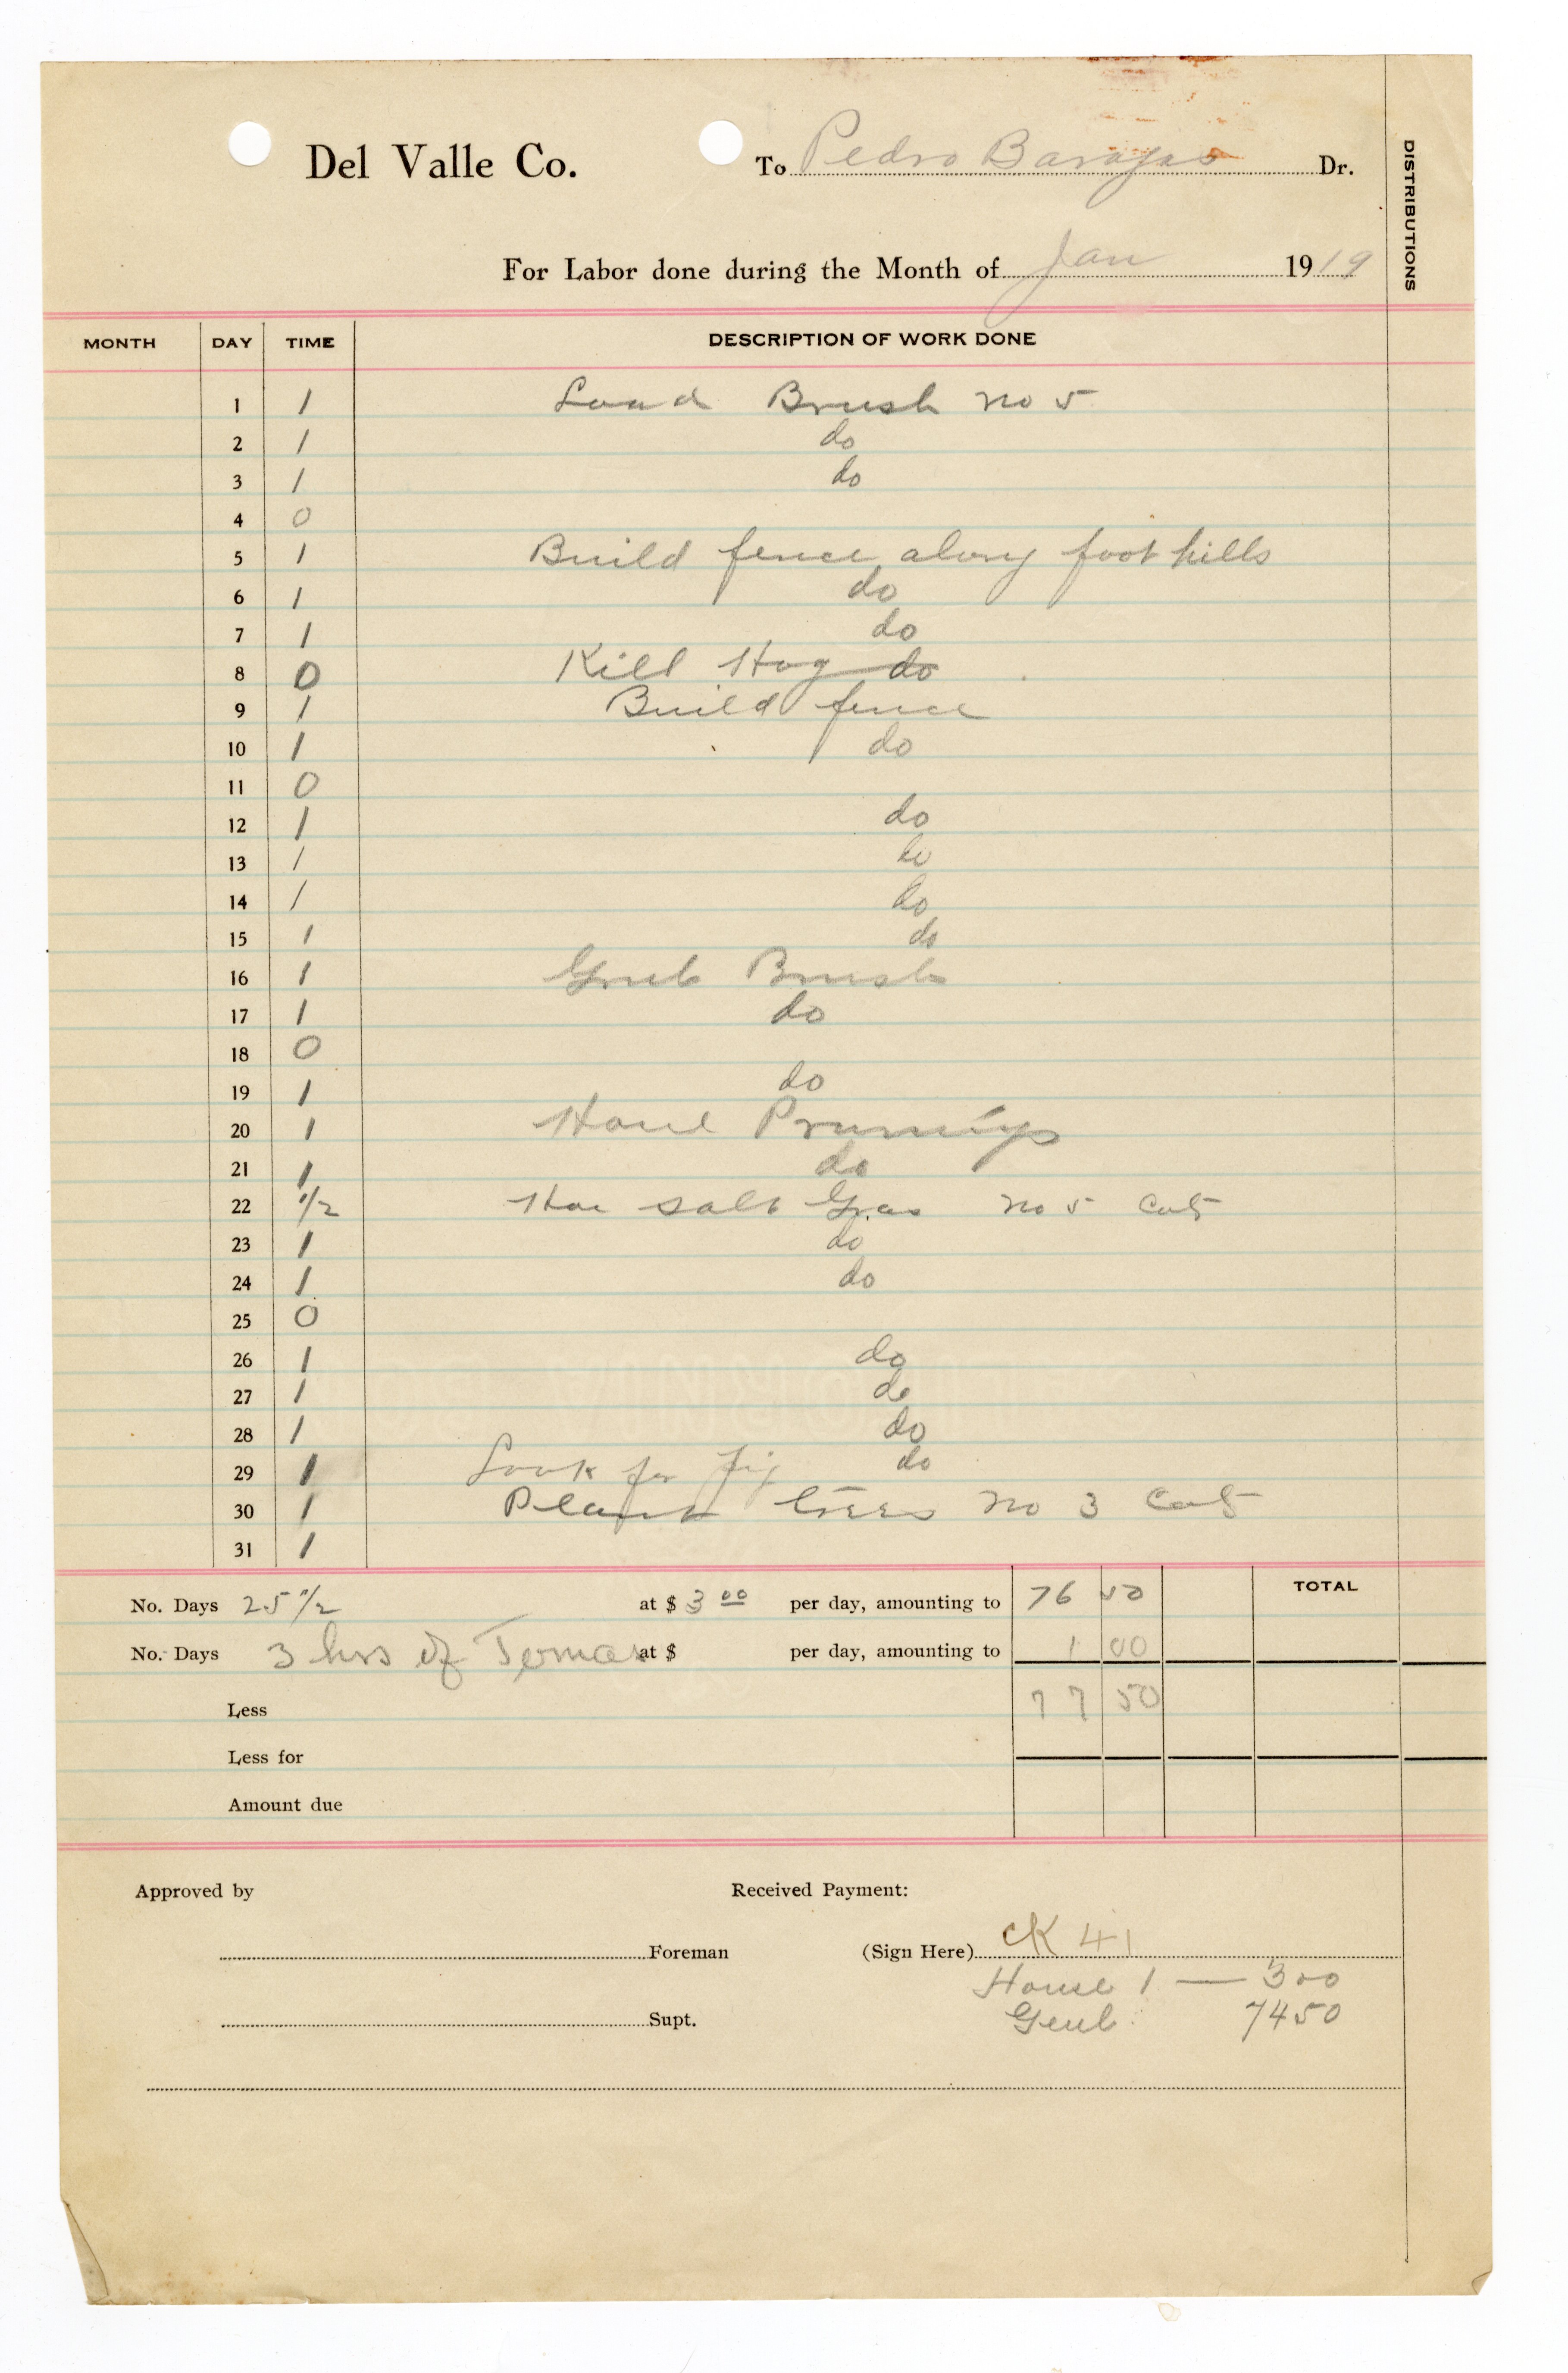 Del Valle Co. To Pedro Barajas Dr.
DISTRIBUTIONS
For Labor done during the Month of Jan 1919
MONTH DAY TIME DESCRIPTION OF WORK DONE
1 1 Load Brush no 5
2 1 do
3 1 do
4 0
5 1 Build fence along foot hills
6 1 do
7 1 do
8 0 Kill Hog do
9 1 Build fence
10 1 do
11 0
12 1 do
13 1 do
14 1 do
15 1 do
16 1 Grub Brush
17 1 do
18 0
19 1 do
20 1 Haul Prunings
21 1 do
22 1/2 Hoe salt Gras no 5 Cat
23 1 do
24 1 do
25 0
26 1 do
27 1 do
28 1 do
29 1 Look for do
30 1 Plant trees no 3 Cat
31 1
TOTAL
No. Days 25 1/2 at $ 3 00 per day, amounting to 76 50
No. Days 3 hrs of Tomas at $ per day, amounting to 1 00
Less 77 50
Less for
Amount due
Approved by Received Payment:
Foreman (Sign Here) CK 41
House 1 — 300
Supt. Genl 7450